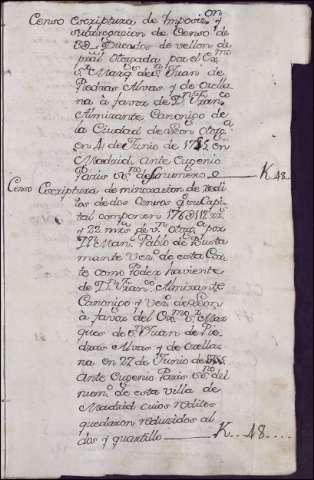 Censo Escriptura de Imposiⁿ y
subrogazion de Censo de
Ducados de vellon de
pral otorgada por el Exᵐᵒ
Sʳ Marqˢ de Sⁿ Juan de
Piedras Alvas y de Orella
na à favor de Dⁿ Franᶜᵒ
Almirante Canonigo de
la Ciudad de otorgᵈᵃ
en 4 de Junio de en
Madrid ante Eugenio
Paris essⁿᵒ de su numero K 48
Censo Escriptura de minorazion de redi
tos de dos censos q su Capi
tal componen
y 22 mrs de vⁿ otorgᵈᵃ por
Dⁿ Manˡ Pablo de Busta
mante Vezᵒ de esta Cor
te como Poder haviente
de Dⁿ Franᶜᵒ Almirante
Canonigo y Vezᵒ de
à favor del Exᵐᵒ Sʳ Mar
ques de Sⁿ Juan de Pie
dras Alvas y de Orella
na en 27 de Junio de
Ante Eugenio Paris essⁿᵒ del
numᵒ de esta villa de
Madrid cuios reditos
quedaron reduzidos al
dos y quartillo K 48